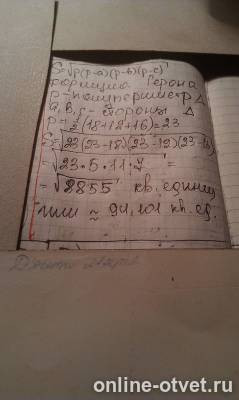 S=√p(p-a)(p-b)(p-c)
формула Герона
p-полупериметр Δ
a,b,c-стороны Δ
p=1/2(18+12+16)=23
S=√23(23-18)(23-12)(23-16)
=√23·5·11·7 =
=√8855 кв. единиц
или ≈ 94,101 кв. ед.
online-otvet.ru